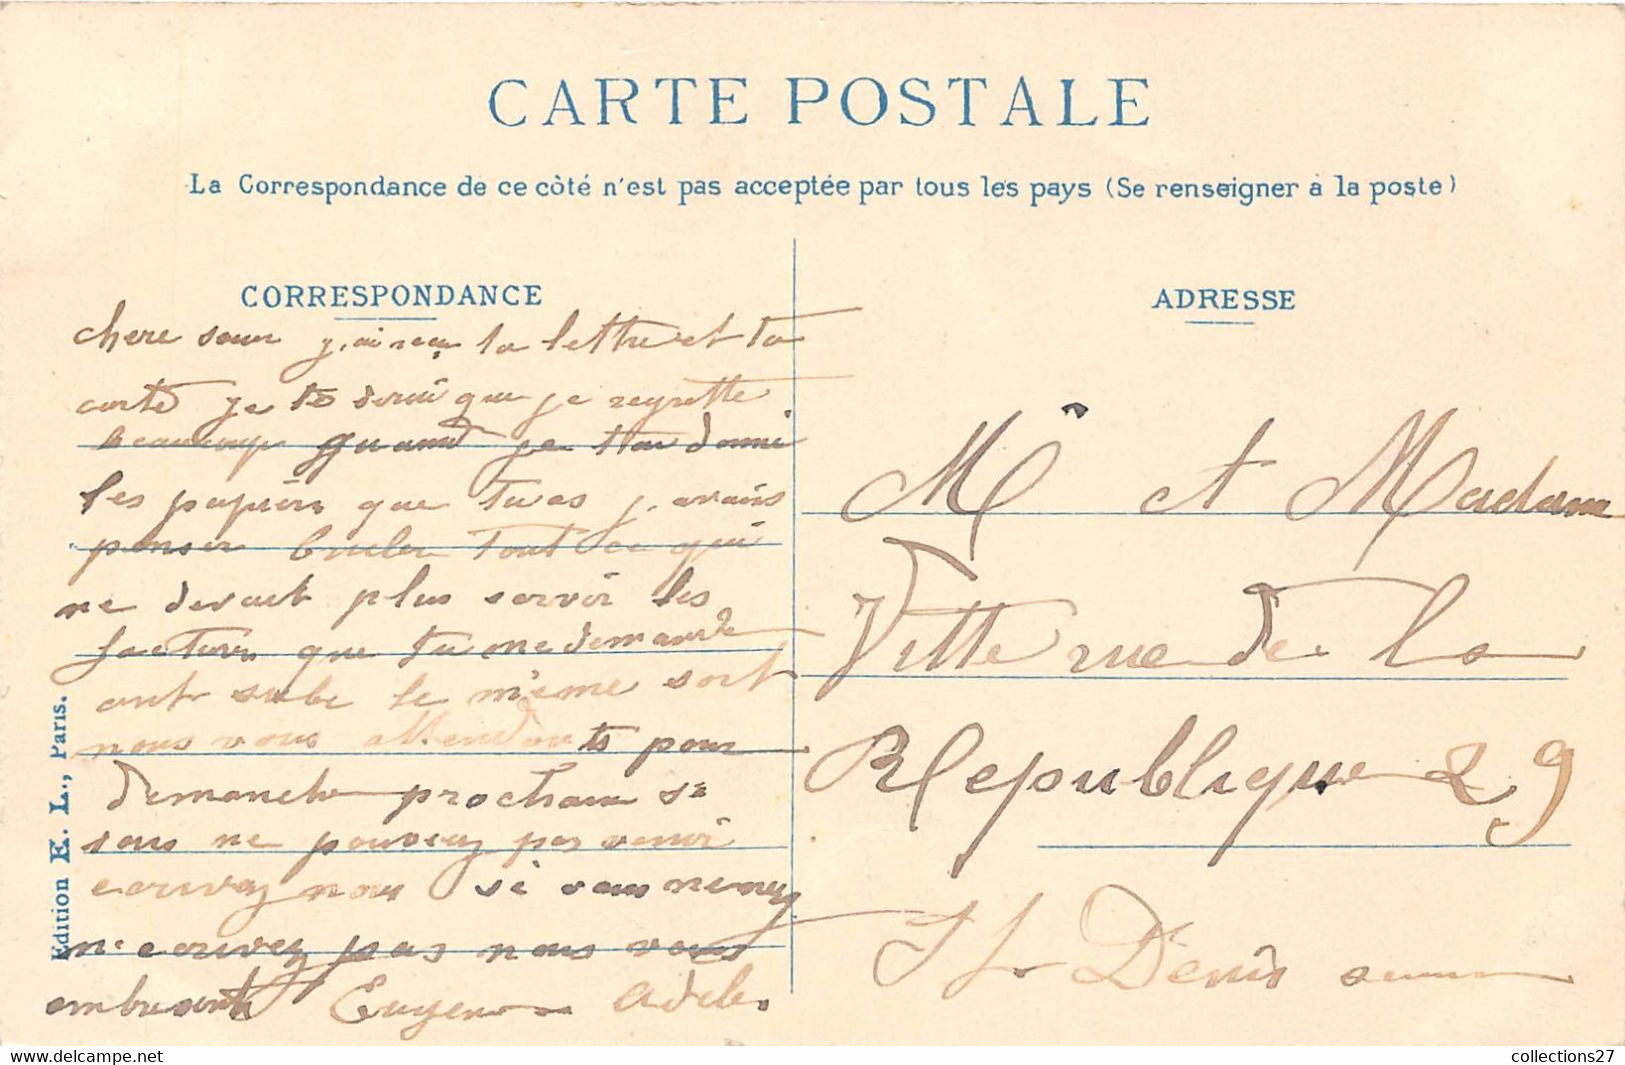 CARTE POSTALE
La Correspondance de ce côté n'est pas acceptée par tous les pays (Se renseigner à la poste)
CORRESPONDANCE
chere seur j.ai reçu ta lettre et ta
carte je te dirai que je regrette
beaucoup quand je t'ai donné
les papiers que tu as j.avais
penser bruler tout ce qui
ne devait plus servir les
factures que tu me demande
ont subi le même sort
nous vous attendons pour
dimanche prochain si
vous ne pouvez pas venir
ecrivez nous si vous venez
n'ecrivez pas nous vous
embrasont Eugene Adele
ADRESSE
M et Madame
Vitte rue de la
Republique 29
St Denis seine
Edition E. L., Paris.
collections27